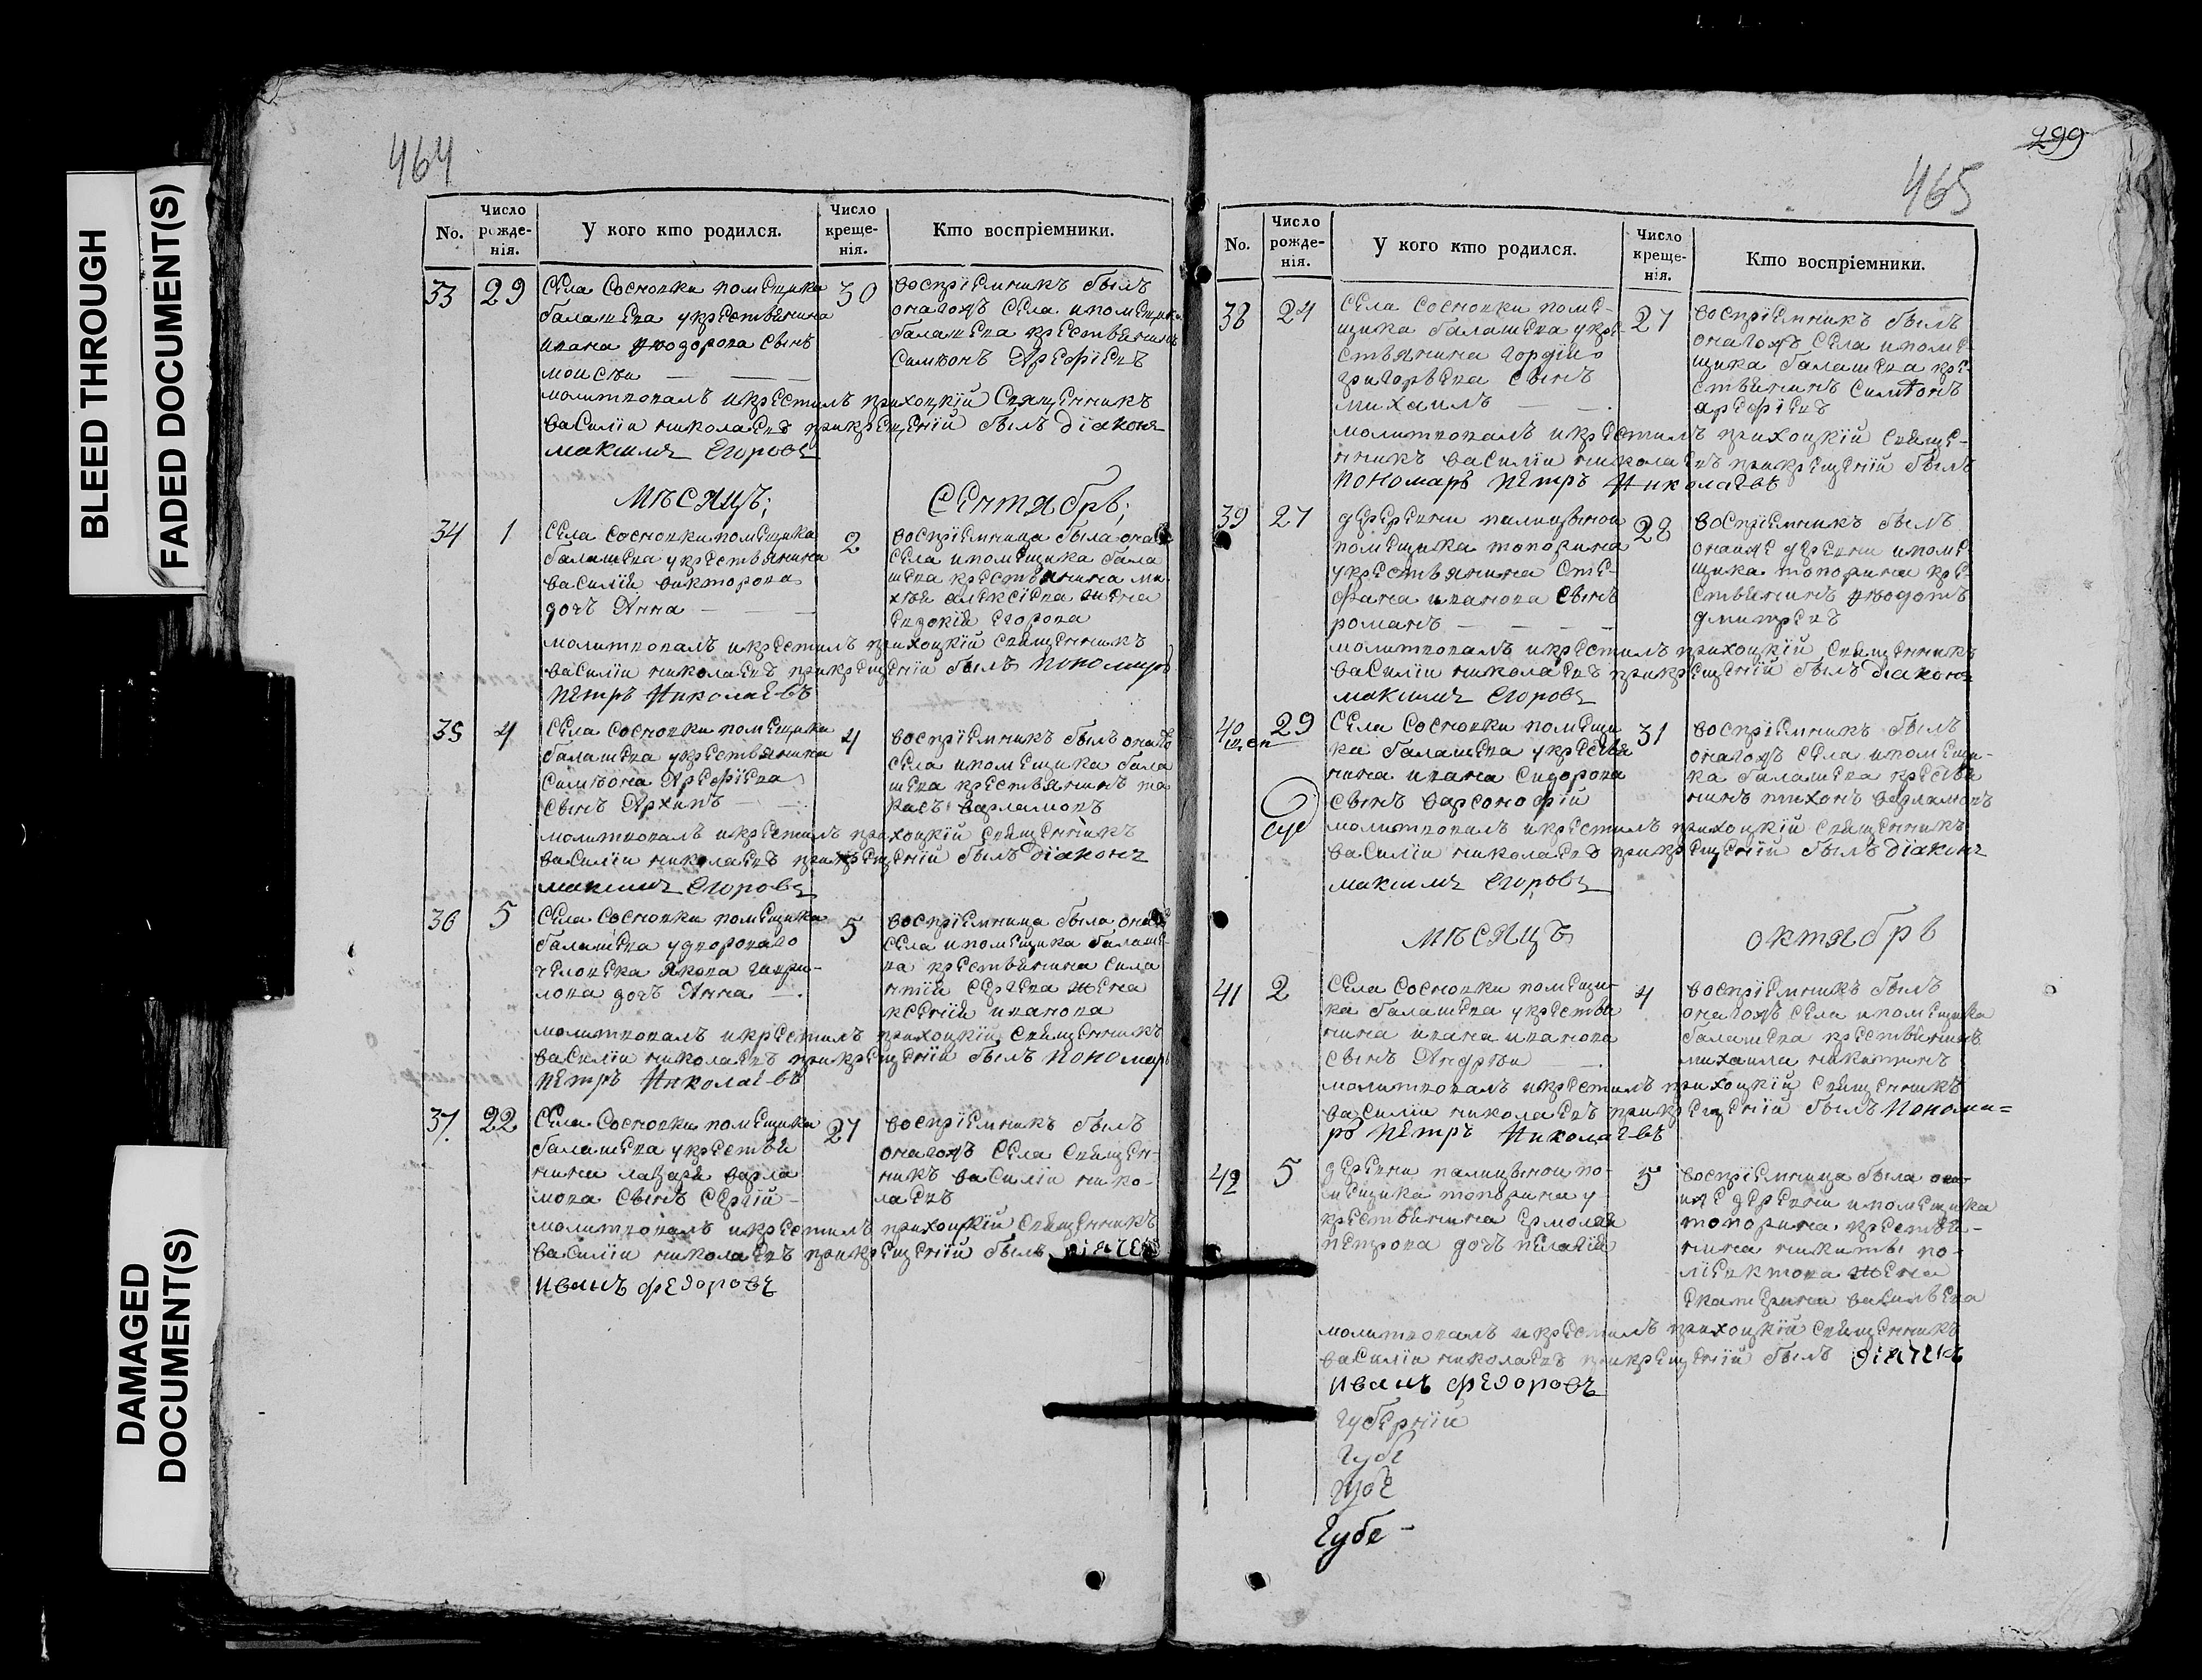 BLEED THROUGH
FADED DOCUMENT(S)
DAMAGED
DOCUMENT(S)
464
No.
Число
рожде-
нія.
У кого кто родился.
Число
креще-
нія.
Кто воспріемники.
33
29
Села Сосновки помещика
балашева укрестьянина
ивана Ѳеодорова сынъ
моисѣи
30
воспріемникъ былъ
онагожъ села ипомещика
балашева крестьянинъ
Симѣонъ Арефіевъ
молитвовалъ икрестилъ прихоцкій Священникъ
василіи николаевъ прикрещеній былъ діаконъ
максимъ Егоровъ
Мѣсяцъ;
Сентябрь;
34
1
Села Сосновки помещика
балашева укрестьянина
василія викторова
дочь Анна
2
воспріемница была онаго
села ипомещика бала
шева крестьянина ми
хѣя алексіева жена
евдокія егорова
молитвовалъ икрестилъ прихоцкій священникъ
василіи николаевъ прикрещеній былъ пономарь
петръ Николаевъ
35
4
Села Сосновки помещика
балашева укрестьянина
Симѣона Арефіева
сынъ Архипъ
4
воспріемникъ былъ онаго
села ипомещика бала
шева крестьянинъ та
расъ варламовъ
молитвовалъ икрестилъ прихоцкій священникъ
василіи николаевъ прикрещеній былъ діаконъ
максимъ Егоровъ
36
5
Села Сосновки помещика
балашева удворового
человека Якова гаври-
лова дочь Анна
5
воспріемница была онаго
села ипомещика балаше-
ва крестьянина сила
нтія сергева жена
ксенія иванова
молитвовалъ икрестилъ прихоцкій священникъ
василіи николаевъ прикрещеній былъ пономарь
петръ Николаевъ
37.
22
Села Сосновки помещика
балашева укрестья
нина лазаря варла
мова сынъ Сергій
27
воспріемникъ былъ
онагожъ села священ-
никъ василіи нико-
лаевъ
молитвовалъ икрестилъ прихоцкій священникъ
василіи николаевъ прикрещеній былъ
иванъ федоровъ
299
465
No.
Число
рожде-
нія.
У кого кто родился.
Число
креще-
нія.
Кто воспріемники.
38
24
Села Сосновки поме-
щика балашева укре-
стьянина гордія
григорьева сынъ
михаилъ
27
воспріемникъ былъ
онагожъ села ипоме-
щика балашева кре-
стьянинъ Симѣонъ
арефіевъ
молитвовалъ икрестилъ прихоцкій священ-
никъ василіи николаевъ прикрещеній былъ
пономарь петръ Николаевъ
39
27
деревни палицыной
помещика топорина
укрестьянина сте-
фана иванова сынъ
романъ
28
воспріемникъ былъ
онаиже деревни ипоме-
щика топорина кре-
стьянинъ Ѳеодотъ
дмитревъ
молитвовалъ икрестилъ прихоцкій священникъ
василіи николаевъ прикрещеній былъ діаконъ
максимъ Егоровъ
40
29
Села Сосновки помещи
ка балашева укрестья
нина ивана сидорова
сынъ варсонофій
31
воспріемникъ былъ
онагожъ села ипомещи-
ка балашева крестья
нинъ тихонъ варламовъ
молитвовалъ икрестилъ прихоцкій священникъ
василіи николаевъ прикрещеній былъ діаконъ
максимъ Егоровъ
мѣсяцъ
октябрь
41
2
Села Сосновки помещи-
ка балашева укрестья
нина ивана иванова
сынъ Андрѣи
4
воспріемникъ былъ
онагожъ села ипомещика
балашева крестьянинъ
михаила никитинъ
молитвовалъ икрестилъ прихоцкій священникъ
василіи николаевъ прикрещеній былъ понома=
рь петръ Николаевъ
42
5
деревни палицыной по-
мещика топорина у
крестьянина ермолая
петрова дочь пелагія
5
воспріемница была она-
иже деревни ипомещика
топорина крестья-
нина никиты по-
ліевктова жена
екатерина васильева
молитвовалъ икрестилъ прихоцкій священникъ
василіи николаевъ прикрещеній былъ діячекъ
иванъ федоровъ
губерній
Губе
Губе -